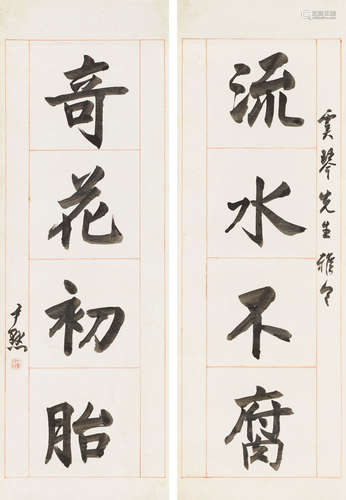 雲琴先生雅令
流水不腐
奇花初胎
尹默